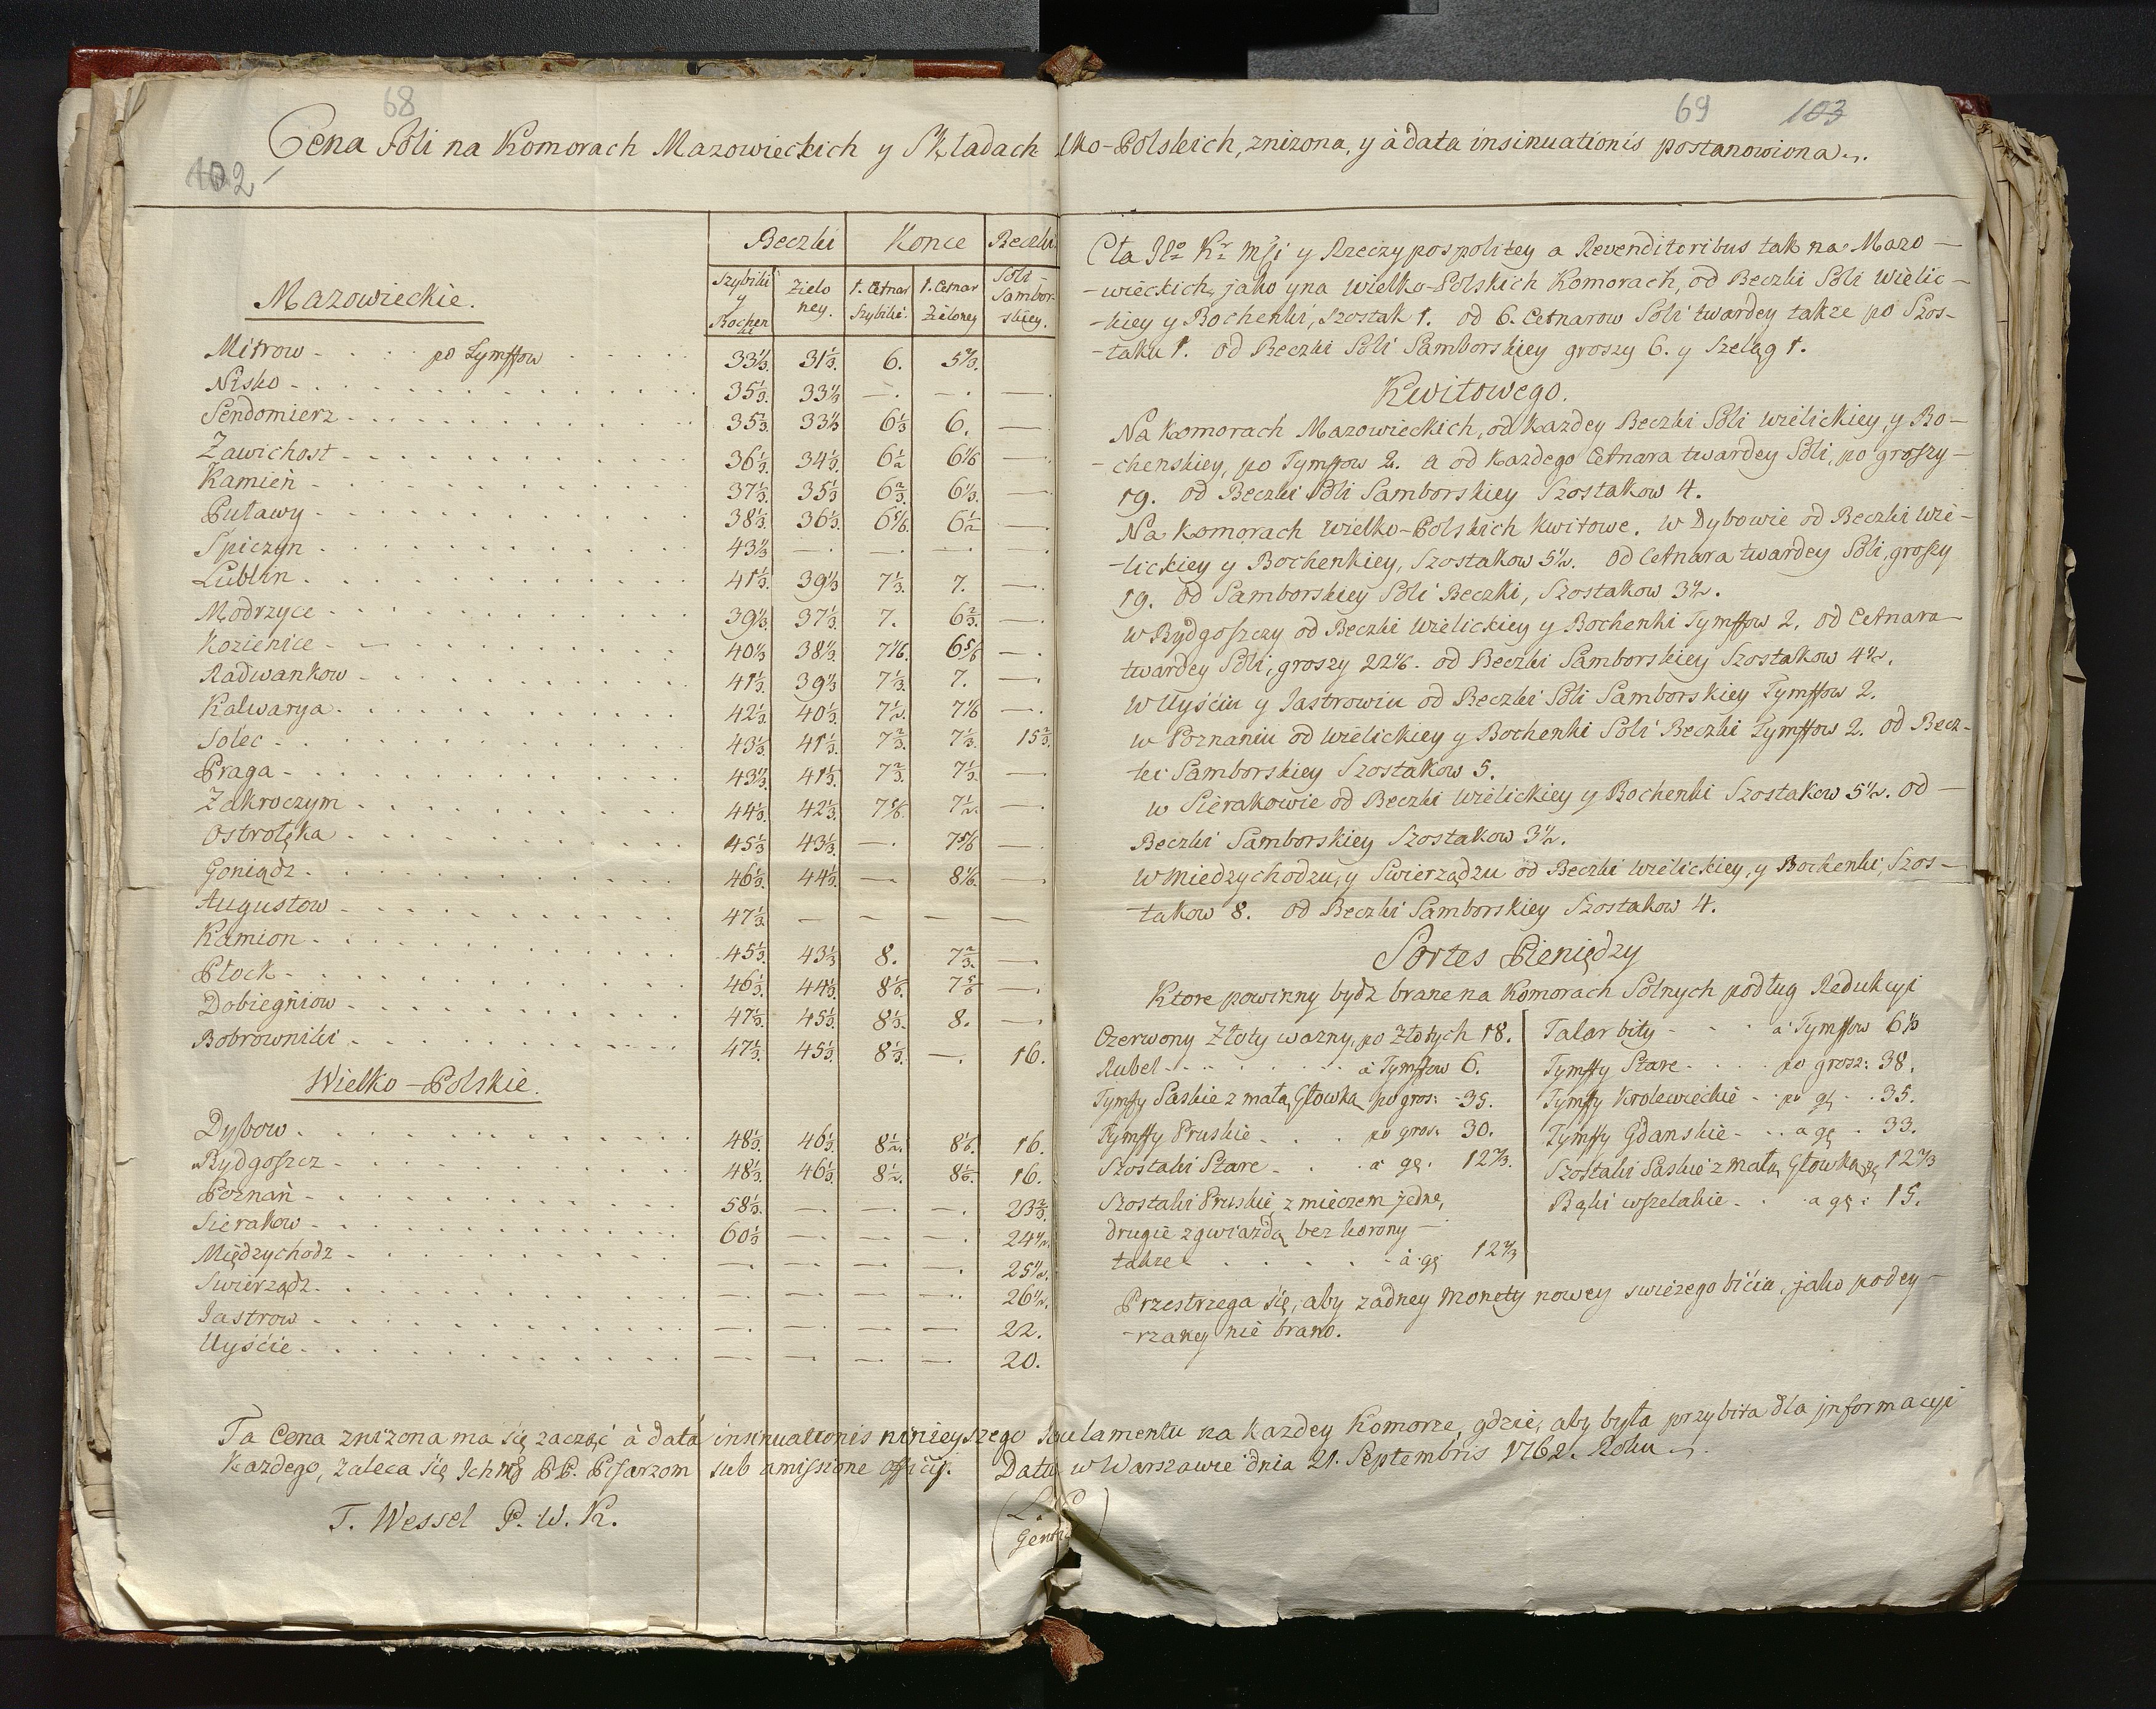 68
69 103
102
Cena Soli na Komorach Mazowieckich y Składach lko-Polskich, znizona, y à data insinuationis postanowiona.
Beczki Konce Beczki
Szybiki y Bochen ki Zielo ney. 1. Cetnar Szybiki. 1. Cetnar Zieloney Soli Sambor- skiey.
Mazowieckie.
Mitrow - po Tymffow 33 1/3 31 1/3. 6. 5 2/3.
Nisko - 35 1/3. 33 1/3 —. —. —.
Sendomierz 35 1/3. 33 1/3 6 1/3 6. —
Zawichost 36 1/3. 34 1/3. 6 1/2 6 1/6 —
Kamień 37 1/3. 35 1/3 6 2/3. 6 1/3. —
Puławy - 38 1/3. 36 1/3. 6 5/6. 6 1/2 —
Spiczyn 43 1/3 —. —. —. —.
Lublin 41 1/3. 39 1/3 7 1/3. 7. —.
Modrzyce 39 1/3. 37 1/3. 7. 6 2/3. —.
Kozienice 40 1/3 38 1/3. 7 1/6. 6 5/6 —.
Radwankow 41 1/3. 39 1/3 7 1/3. 7. —.
Kalwarya 42 1/3. 40 1/3. 7 1/2. 7 1/6 —.
Solec 43 1/3. 41 1/3. 7 2/3. 7 1/3. 15 2/3.
Praga 43 1/3. 41 1/3. 7 2/3. 7 1/3. —
Zakroczym 44 1/3. 42 1/3. 7 5/6. 7 1/2. —.
Ostrołęka 45 1/3 43 1/3. —. 7 5/6 —.
Goniądz 46 1/3. 44 1/3. — 8 1/6. —.
Augustow 47 1/3. — — — —
Kamion 45 1/3. 43 1/3 8. 7 2/3. —.
Płock 46 1/3. 44 1/3. 8 1/6. 7 5/6 —.
Dobiegniow 47 1/3. 45 1/3. 8 1/3. 8. —
Bobrowniki 47 1/3. 45 1/3. 8 1/3. —. 16.
Wielko-Polskie.
Dybow 48 1/3. 46 1/3. 8 1/2. 8 1/6. 16.
Bydgoszcz 48 1/3. 46 1/3. 8 1/2. 8 1/6. 16.
Poznań 58 1/3. —. —. —. 23 2/3.
Sierakow 60 1/3 —. —. —. 24 1/2.
Międzychodz —. —. —. —. 25 1/2.
Swierządz —. —. —. —. 26 1/2.
Jastrow —. —. —. — 22.
Uyście —. —. —. —. 20.
Cła Kr Mci y Rzeczypospolitey a Revenditoribus tak na Mazo-
-wieckich, jako y na Wielko-Polskich Komorach, od Beczki Soli Wielic-
-kiey y Bochenki, Szostak 1. od 6. Cetnarow Soli twardey takze po Szos-
-taku 1. od Beczki Soli Samborskiey groszy 6. y Szeląg 1.
Kwitowego.
Na Komorach Mazowieckich, od Kazdey Beczki Soli Wielickiey, y Bo-
-chenskiey, po Tymffow 2. a od Kazdego Cetnara twardey Soli, po groszy
19. od Beczki Soli Samborskiey Szostakow 4.
Na Komorach Wielko-Polskich kwitowe. w Dybowie od Beczki Wie-
-lickiey y Bochenkiey, Szostakow 5 1/2. od Cetnara twardey Soli, groszy
19. od Samborskiey Soli Beczki, Szostakow 3 1/2.
w Bydgoszczy od Beczki Wielickiey y Bochenki Tymffow 2. od Cetnara
twardey Soli, groszy 22 1/6. od Beczki Samborskiey Szostakow 4 1/2.
W Uyściu y Jastrowiu od Beczki Soli Samborskiey Tymffow 2.
w Poznaniu od Wielickiey y Bochenki Soli Beczki Tymffow 2. od Becz-
ki Samborskiey Szostakow 5.
w Sierakowie od Beczki Wielickiey y Bochenki Szostakow 5 1/2. od
Beczki Samborskiey Szostakow 3 1/2.
w Miedzychodzu, y Swierządzu od Beczki Wielickiey, y Bochenki, Szos-
-takow 8. od Beczki Samborskiey Szostakow 4.
Sortes Pieniędzy
Ktore powinny bydz brane na Komorach Solnych podług Redukcyi
Czerwony Złoty wazny, po Złotych 18. Talar bity à Tymffow 6 1/3
Rubel à Tymffow 6. Tymffy Stare po grosz: 38.
Tymffy Saskie z małą Głowką po gros: 35. Tymffy Krolewieckie po gę 35.
Tymffy Pruskie po gros. 30. Tymffy Gdanskie a gę 33.
Szostaki Stare à gę. 12 2/3. Szostaki Saskie z małą Głowką gę 12 2/3
Szostaki Pruskie, z mieczem jedne, Bąki wszelakie a gę: 15.
drugie z gwiazdą bez korony
takze à gę 12 2/3
Przestrzega się, aby zadney Monety nowey swiezego bicia, jako podey-
-rzaney nie brano.
Ta Cena znizona ma się zacząć à datâ insinuationis ninieyszego ulamentu na kazdey Komorze, gdzie, aby była przybita dla jnformacyi
Kazdego, zaleca się Ichmć PP. Pisarzom sub amissione officij. Datū w Warszawie dnia 21. Septembris 1762. Roku
T. Wessel P. W. K.
(L. )